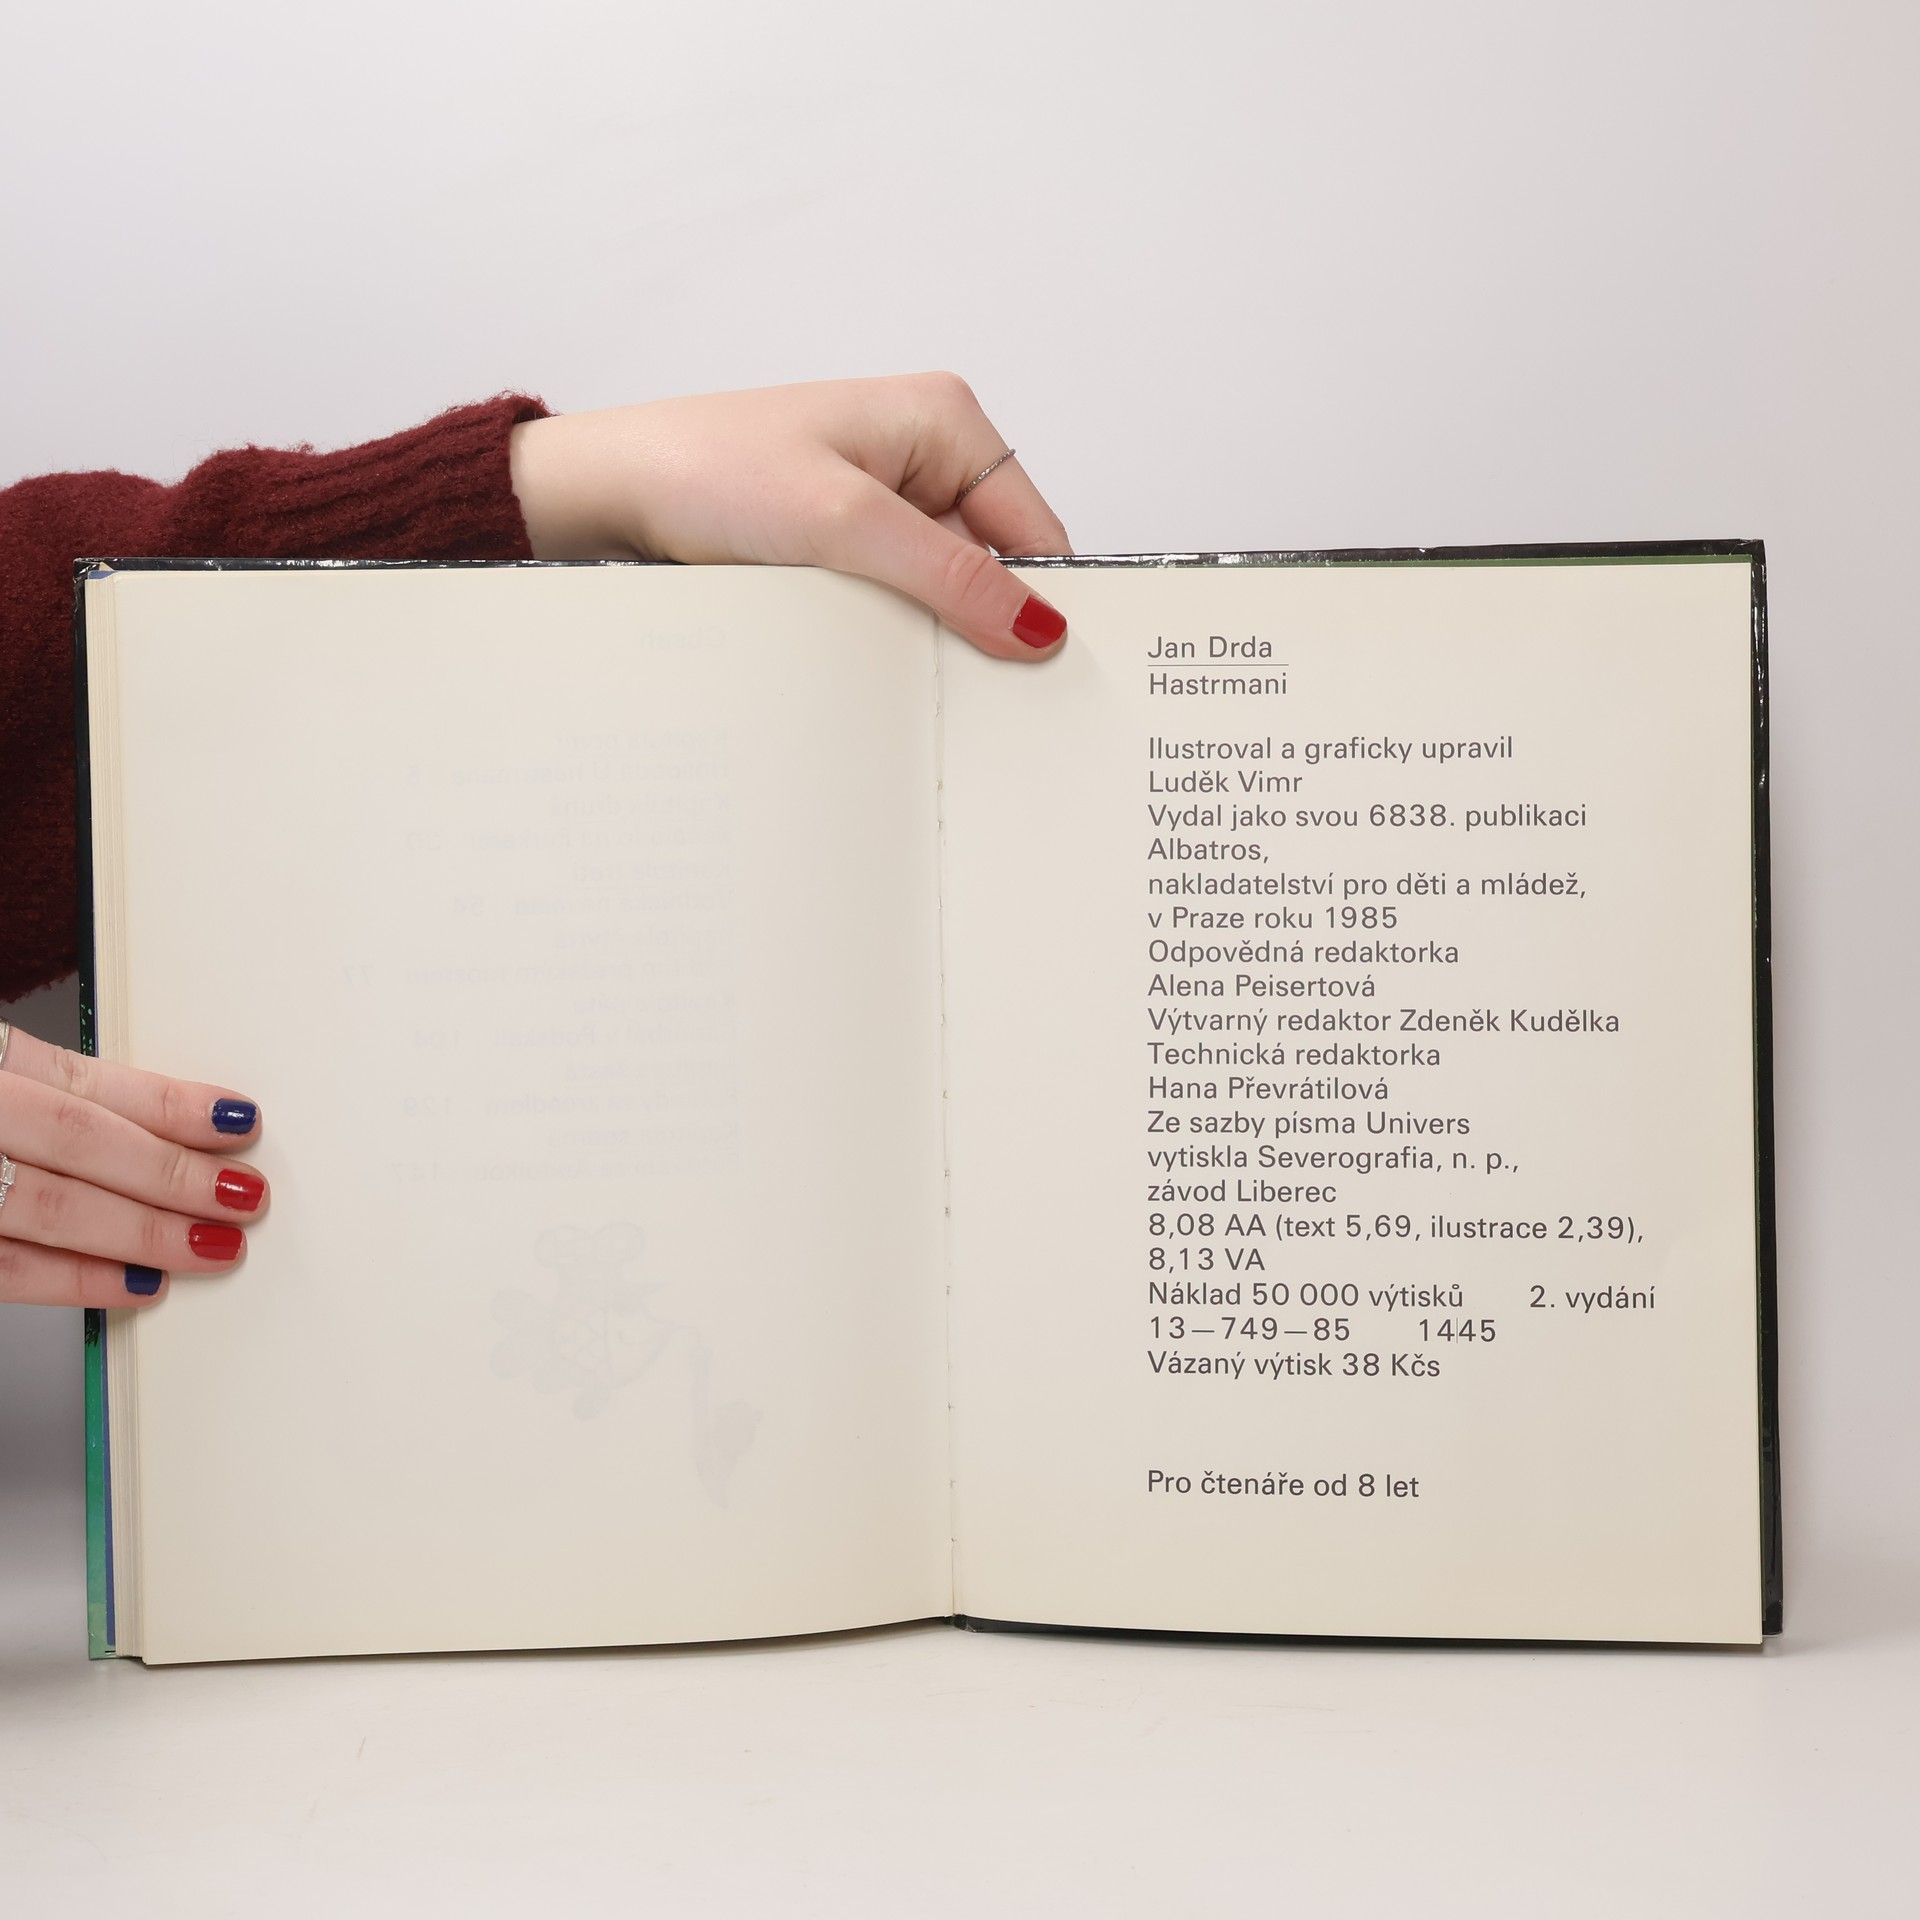 Jan Drda
Hastrmani
Ilustroval a graficky upravil
Luděk Vimr
Vydal jako svou 6838. publikaci
Albatros,
nakladatelství pro děti a mládež,
v Praze roku 1985
Odpovědná redaktorka
Alena Peisertová
Výtvarný redaktor Zdeněk Kudělka
Technická redaktorka
Hana Převrátilová
Ze sazby písma Univers
vytiskla Severografia, n. p.,
závod Liberec
8,08 AA (text 5,69, ilustrace 2,39),
8,13 VA
Náklad 50 000 výtisků 2. vydání
13—749—85 14 45
Vázaný výtisk 38 Kčs
Pro čtenáře od 8 let